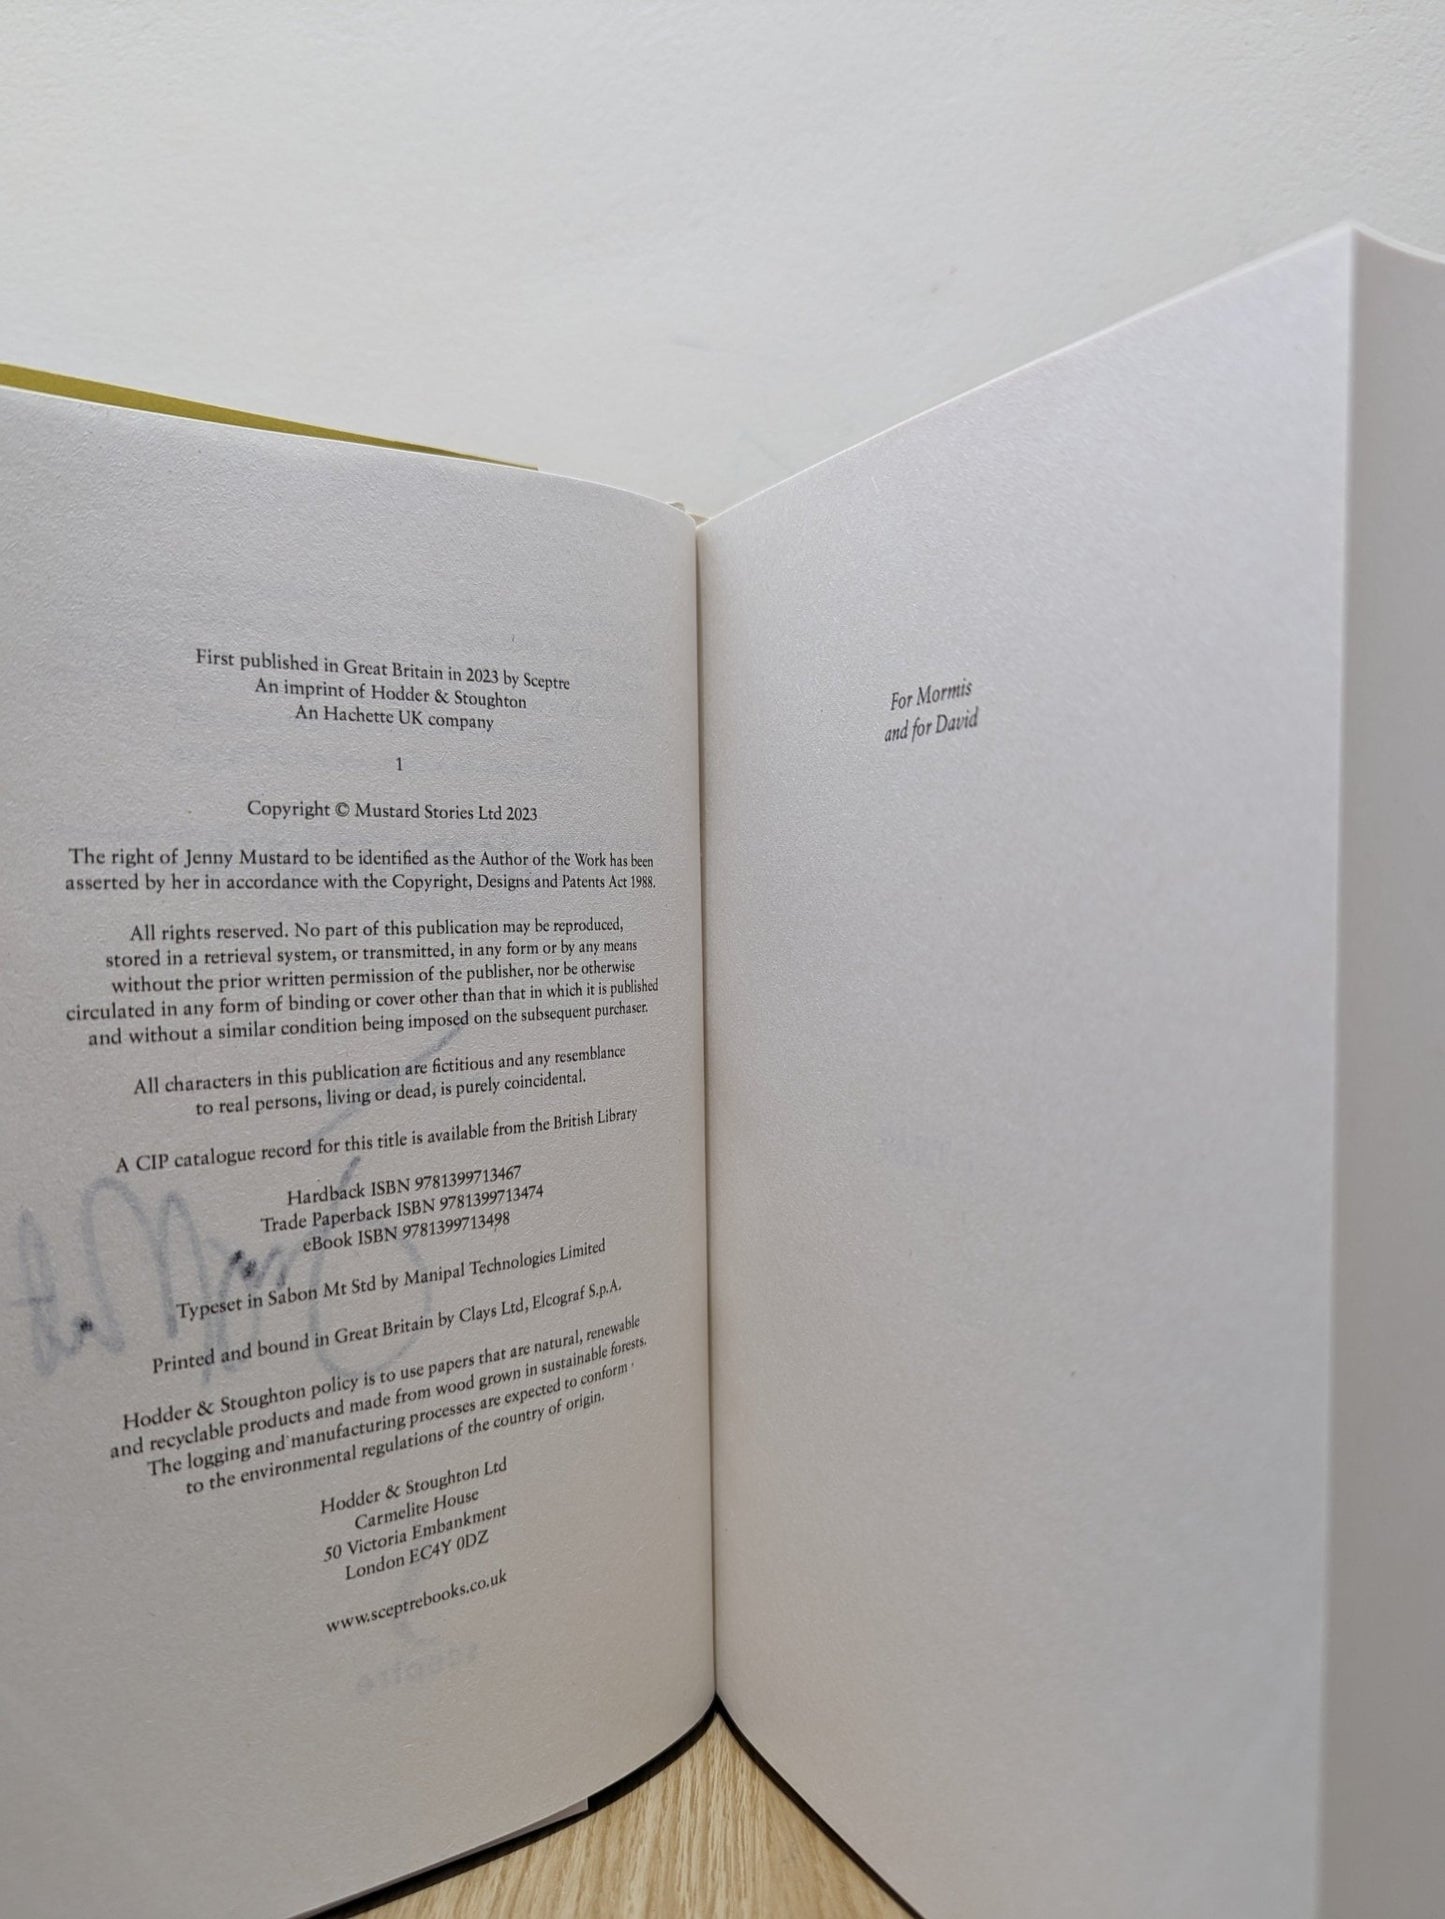 First published in Great Britain in 2023 by Sceptre
An imprint of Hodder & Stoughton
An Hachette UK company
1
Copyright © Mustard Stories Ltd 2023
The right of Jenny Mustard to be identified as the Author of the Work has been
asserted by her in accordance with the Copyright, Designs and Patents Act 1988.
All rights reserved. No part of this publication may be reproduced,
stored in a retrieval system, or transmitted, in any form or by any means
without the prior written permission of the publisher, nor be otherwise
circulated in any form of binding or cover other than that in which it is published
and without a similar condition being imposed on the subsequent purchaser.
All characters in this publication are fictitious and any resemblance
to real persons, living or dead, is purely coincidental.
A CIP catalogue record for this title is available from the British Library
Hardback ISBN 9781399713467
Trade Paperback ISBN 9781399713474
eBook ISBN 9781399713498
Typeset in Sabon Mt Std by Manipal Technologies Limited
Printed and bound in Great Britain by Clays Ltd, Elcograf S.p.A.
Hodder & Stoughton policy is to use papers that are natural, renewable
and recyclable products and made from wood grown in sustainable forests.
The logging and manufacturing processes are expected to conform
to the environmental regulations of the country of origin.
Hodder & Stoughton Ltd
Carmelite House
50 Victoria Embankment
London EC4Y 0DZ
www.sceptrebooks.co.uk
sceptre
For Mormis
and for David